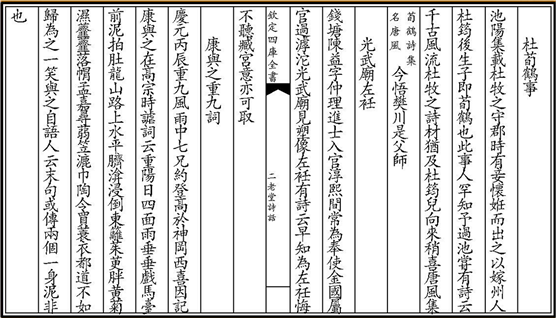 杜荀鶴事
池陽集載杜牧之守郡時有妾懷姙而出之以嫁州人
杜筠後生子即荀鶴也此事人罕知予過池嘗有詩云
千古風流杜牧之詩材猶及杜筠兒向來稍喜唐風集
荀鶴詩集
名唐風
今悟樊川是父師
光武廟左衽
錢塘陳益字仲理進士入官淳熙間常為奉使金國屬
官過滹沱光武廟見塑像左衽有詩云早知為左衽悔
欽定四庫全書
二老堂詩話
不聽臧宮意亦可取
康與之重九詞
慶元丙辰重九風雨中七兄約登高於神岡西喜因記
康與之在高宗時諺詞云重陽日四面雨垂垂戲馬臺
前泥拍肚龍山路上水平臍渰浸倒東籬茱萸胖黃菊
濕虀虀落㡌孟嘉尋蒻笠漉巾陶令買蓑衣都道不如
歸為之一笑與之自語人云末句或傳兩個一身泥非
也